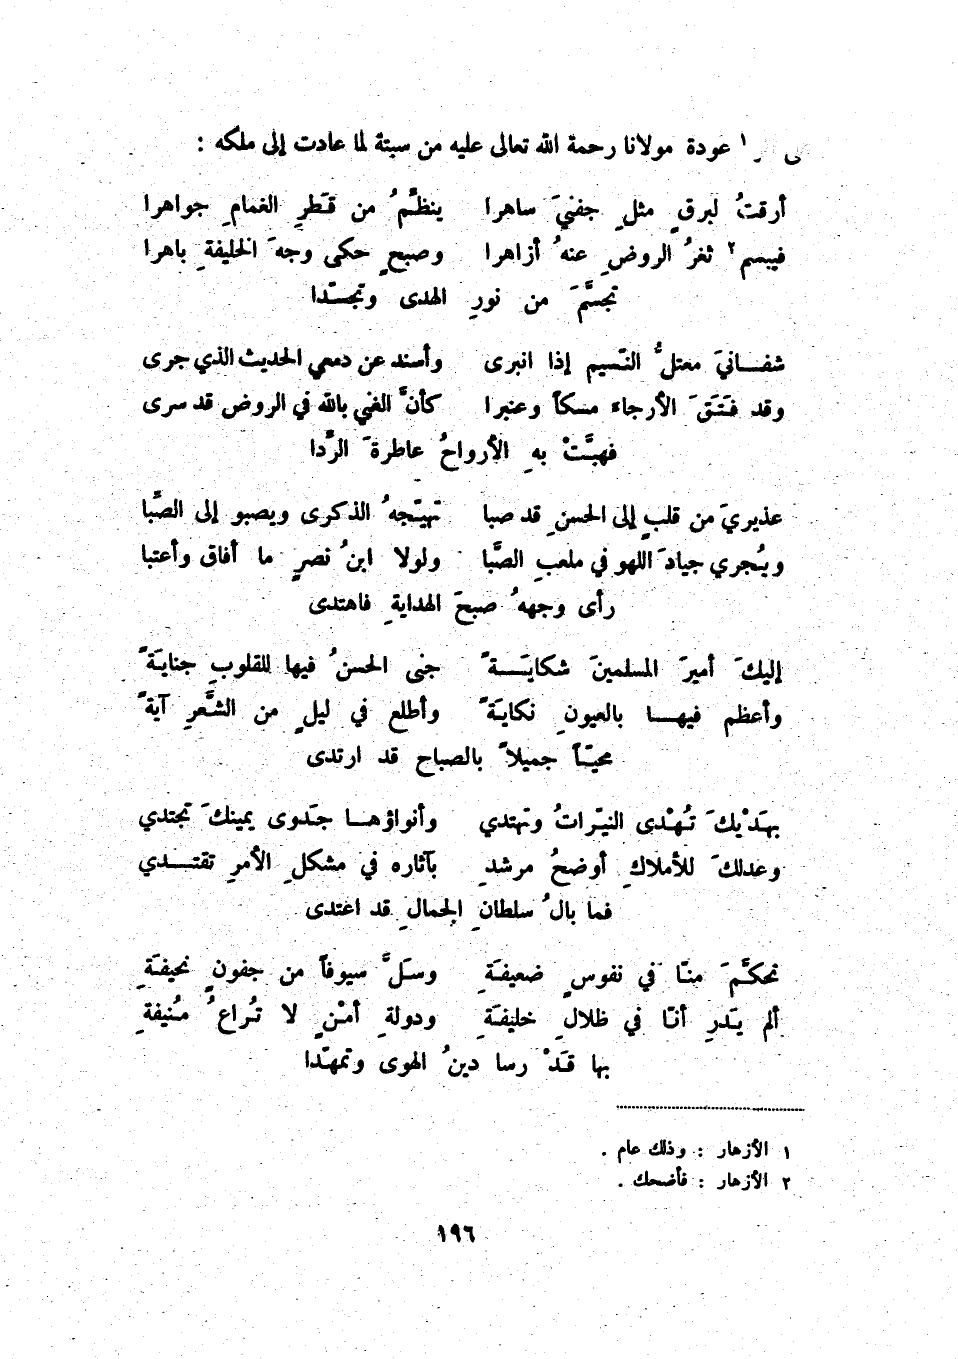 عودة مولانا رحمة الله تعالى عليه من سبتة لما عادت إلى ملكه :
أرقتُ لبرقٍ مثلِ جفنيَ ساهرا ينظّمُ من قَطرِ الغمامِ جواهرا
فيبسم٢ ثغرُ الروضِ عنهُ أزاهرا وصبحٍ حكى وجهَ الخليفةِ باهرا
تجسَّمَ من نورِ الهدى وتجسّدا
شفانيَ معتلُّ النّسيم إذا انبرى وأسند عن دمعي الحديث الذي جرى
وقد فَتَقَ الأرجاء مسكاً وعنبرا كأنَّ الغني بالله في الروض قد سرى
فهبَّتْ بهِ الأرواحُ عاطرةَ الرَّدا
عذيريَ من قلبٍ إلى الحسنِ قد صبا تهيّجهُ الذكرى ويصبو إلى الصَّبا
ويُجري جيادَ اللهو في ملعبِ الصِّبا ولولا ابنُ نصرٍ ما أفاق وأعتبا
رأى وجههُ صبحَ الهدايةِ فاهتدى
إليكَ أميرَ المسلمينَ شكايَةً جنى الحسنُ فيها للقلوبِ جنايَةً
وأعظم فيها بالعيونِ نكايَةً وأطلع في ليلٍ من الشَّعرِ آيةً
محيّاً جميلاً بالصباح قد ارتدى
بهَدْيكَ تُهْدى النيّراتُ وتهتدي وأنواؤها جَدوى يمينكَ تجتدي
وعدلكَ للأملاكِ أوضحُ مرشدِ بآثاره في مشكلِ الأمرِ تقتدي
فما بالُ سلطانِ الجمالِ قد اعتدى
تحكَّمَ منّا في نفوسٍ ضعيفَةِ وسَلَّ سيوفاً من جفونٍ نحيفَةِ
ألم يَدرِ أنّا في ظلالِ خليفَةِ ودولةِ أمْنٍ لا تُراعُ مُنيفةِ
بها قَدْ رسا دينُ الهوى وتمهّدا
١ الأزهار : وذلك عام .
٢ الأزهار : فأضحك .
١٩٦